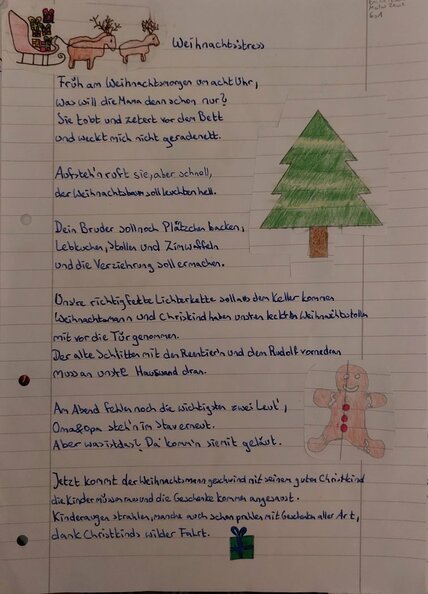 Weihnachtsstress
Früh am Weihnachtsmorgen um acht Uhr,
Was will die Mama denn schon nur?
Sie tobt und zetert vor dem Bett
und weckt mich nicht gerade nett.
Aufsteh'n ruft sie, aber schnell,
der Weihnachtsbaum soll leuchten hell.
Dein Bruder soll noch Plätzchen backen,
Lebkuchen, Stollen und Zimwaffeln
und die Verziehrung soll er machen.
Uns're richtig fette Lichterkette soll aus dem Keller kommen
Weihnachtsmann und Christkind haben unsren leckren Weihnachtsstollen
mit vor die Tür genommen.
Der alte Schlitten mit den Rentier'n und dem Rudolf vornedran
muss an uns're Hauswand dran.
Am Abend fehlen noch die wichtigsten zwei Leut',
Oma & Opa steh'n im Stau erneut.
Aber was ist das? Da komm'n sie mit geläut.
Jetzt kommt der Weihnachtsmann geschwind mit seinem guten Christkind
die Kinder müssen raus und die Geschenke kommen angesaust.
Kinderaugen strahlen, manche auch schon prahlen mit Geschenken aller Art,
dank Christkinds wilder Fahrt.